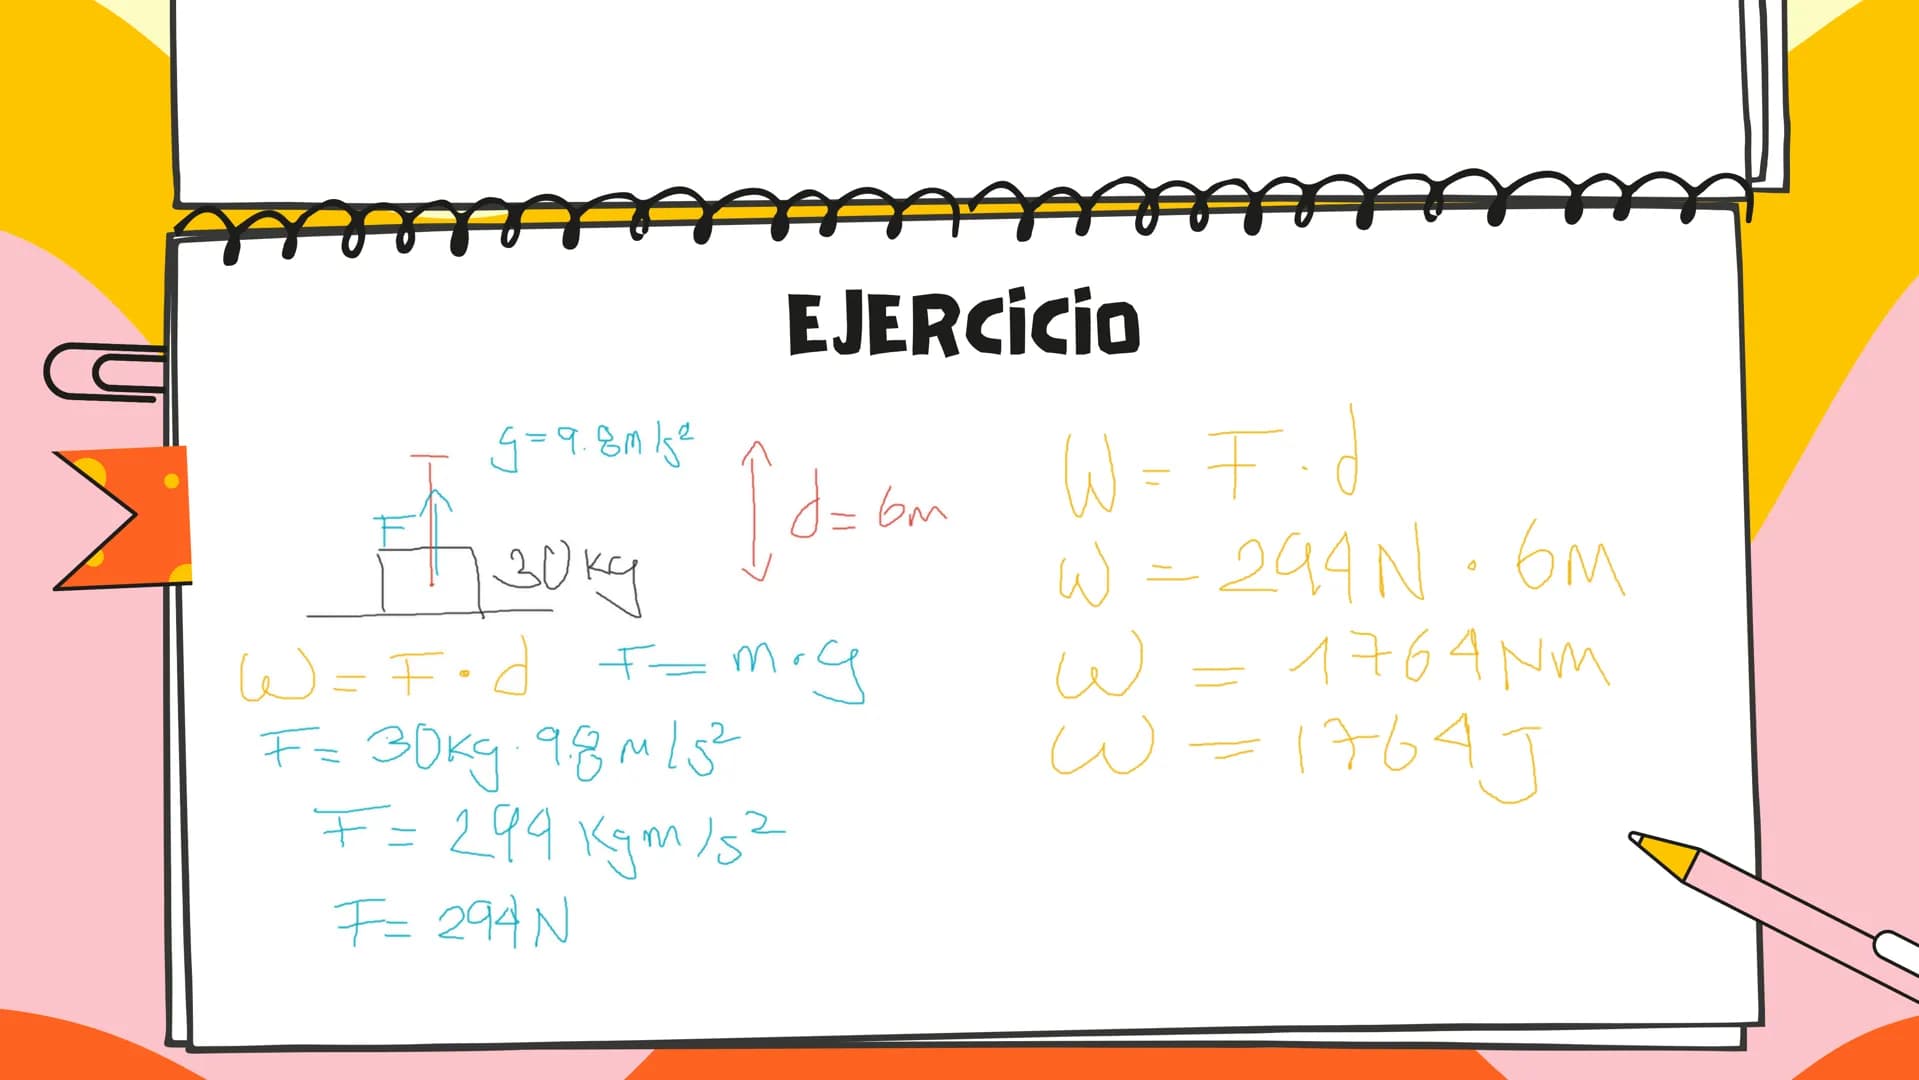 EJERCICIO
g=9.8m/s²
F
d=6m
30kg
W=F·d
F=m·g
F=30kg·9.8m/s²
F=294kgm/s²
F=294N
W=F·d
W=294N·6m
W=1764Nm
W=1764J